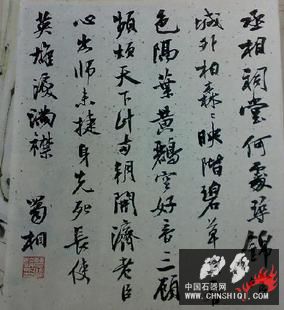 丞相祠堂何處尋錦
城外柏森〻映階碧草
色隔葉黃鸝空好音三顧
頻煩天下計兩朝開濟老臣
心出師未捷身先死長使
英雄淚滿襟 蜀相
中国石器网
CNSHIQI.COM